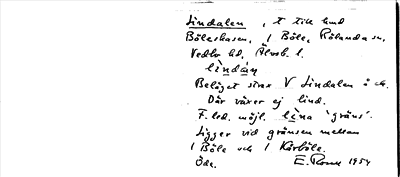 Lindalen, t till hmd
Böleskasen, 1 Böle, Rölanda sn,
Vedbo hd, Älvsb. l.
lìndán
Beläget strax V Lindalen å ek.
Där växer ej lind.
F. led. möjl. lìna 'gräns'.
Ligger vid gränsen mellan
1 Böle och 1 Kårböle.
Öde. E. Rome 1954